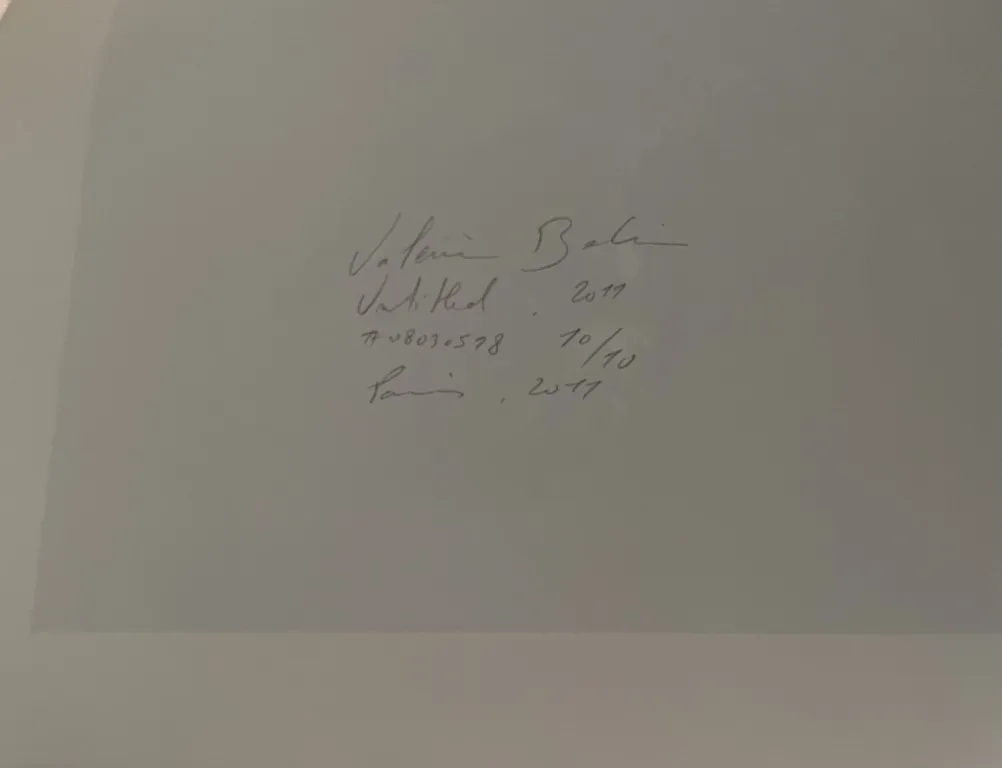 Valérie Belin
Untitled . 2011
#08030518 10/10
Paris . 2011